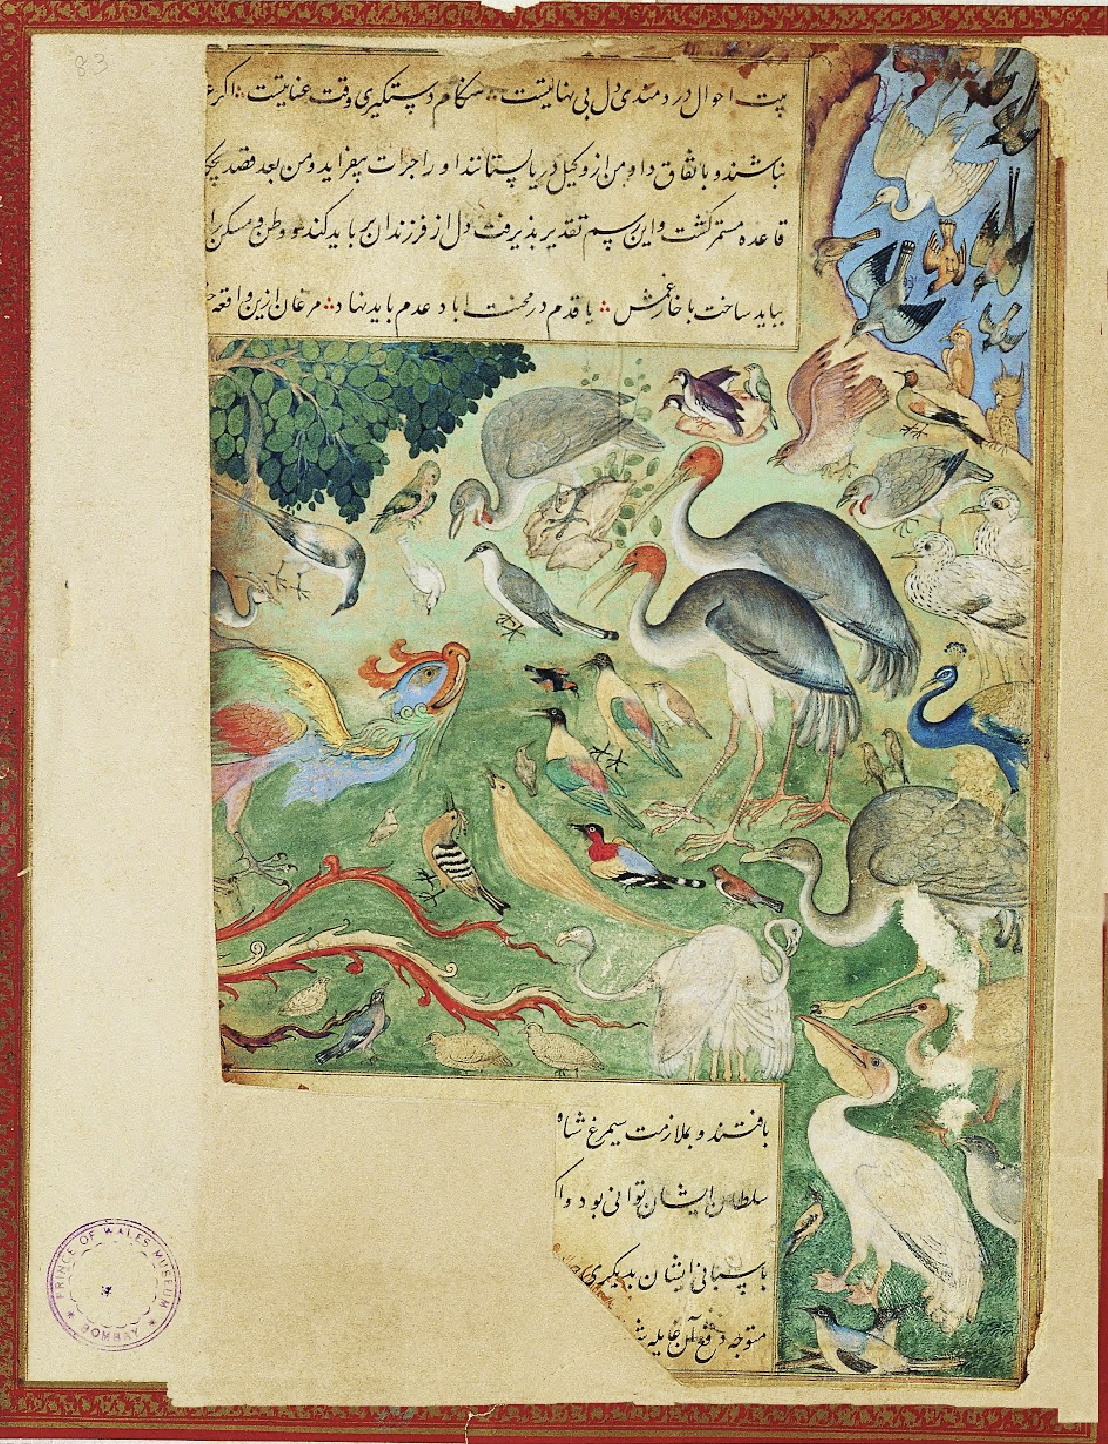 83
بیت احوال دردمندی دل بی نهایتست هنگام دستگیری وقت عنایتست اگر
نباشند و باتفاق داد من از وکیل دریا بستانند او را جرات بیفزاید و من بعد قصد
قاعده مستمر گشت و این رسم تقدیر پذیرفت دل از فرزندان بر باید کند و وطن و مسکن
بباید ساخت با خار غمش یا قدم در محنت اباد عدم باید نهاد مرغان ازین واقعه
یافتند و بملازمت سیمرغ شاه
سلطان ایشان توانی بود و
پاسبانی ایشان
متوجه دفع آن غایله
PRINCE OF WALES MUSEUM
BOMBAY